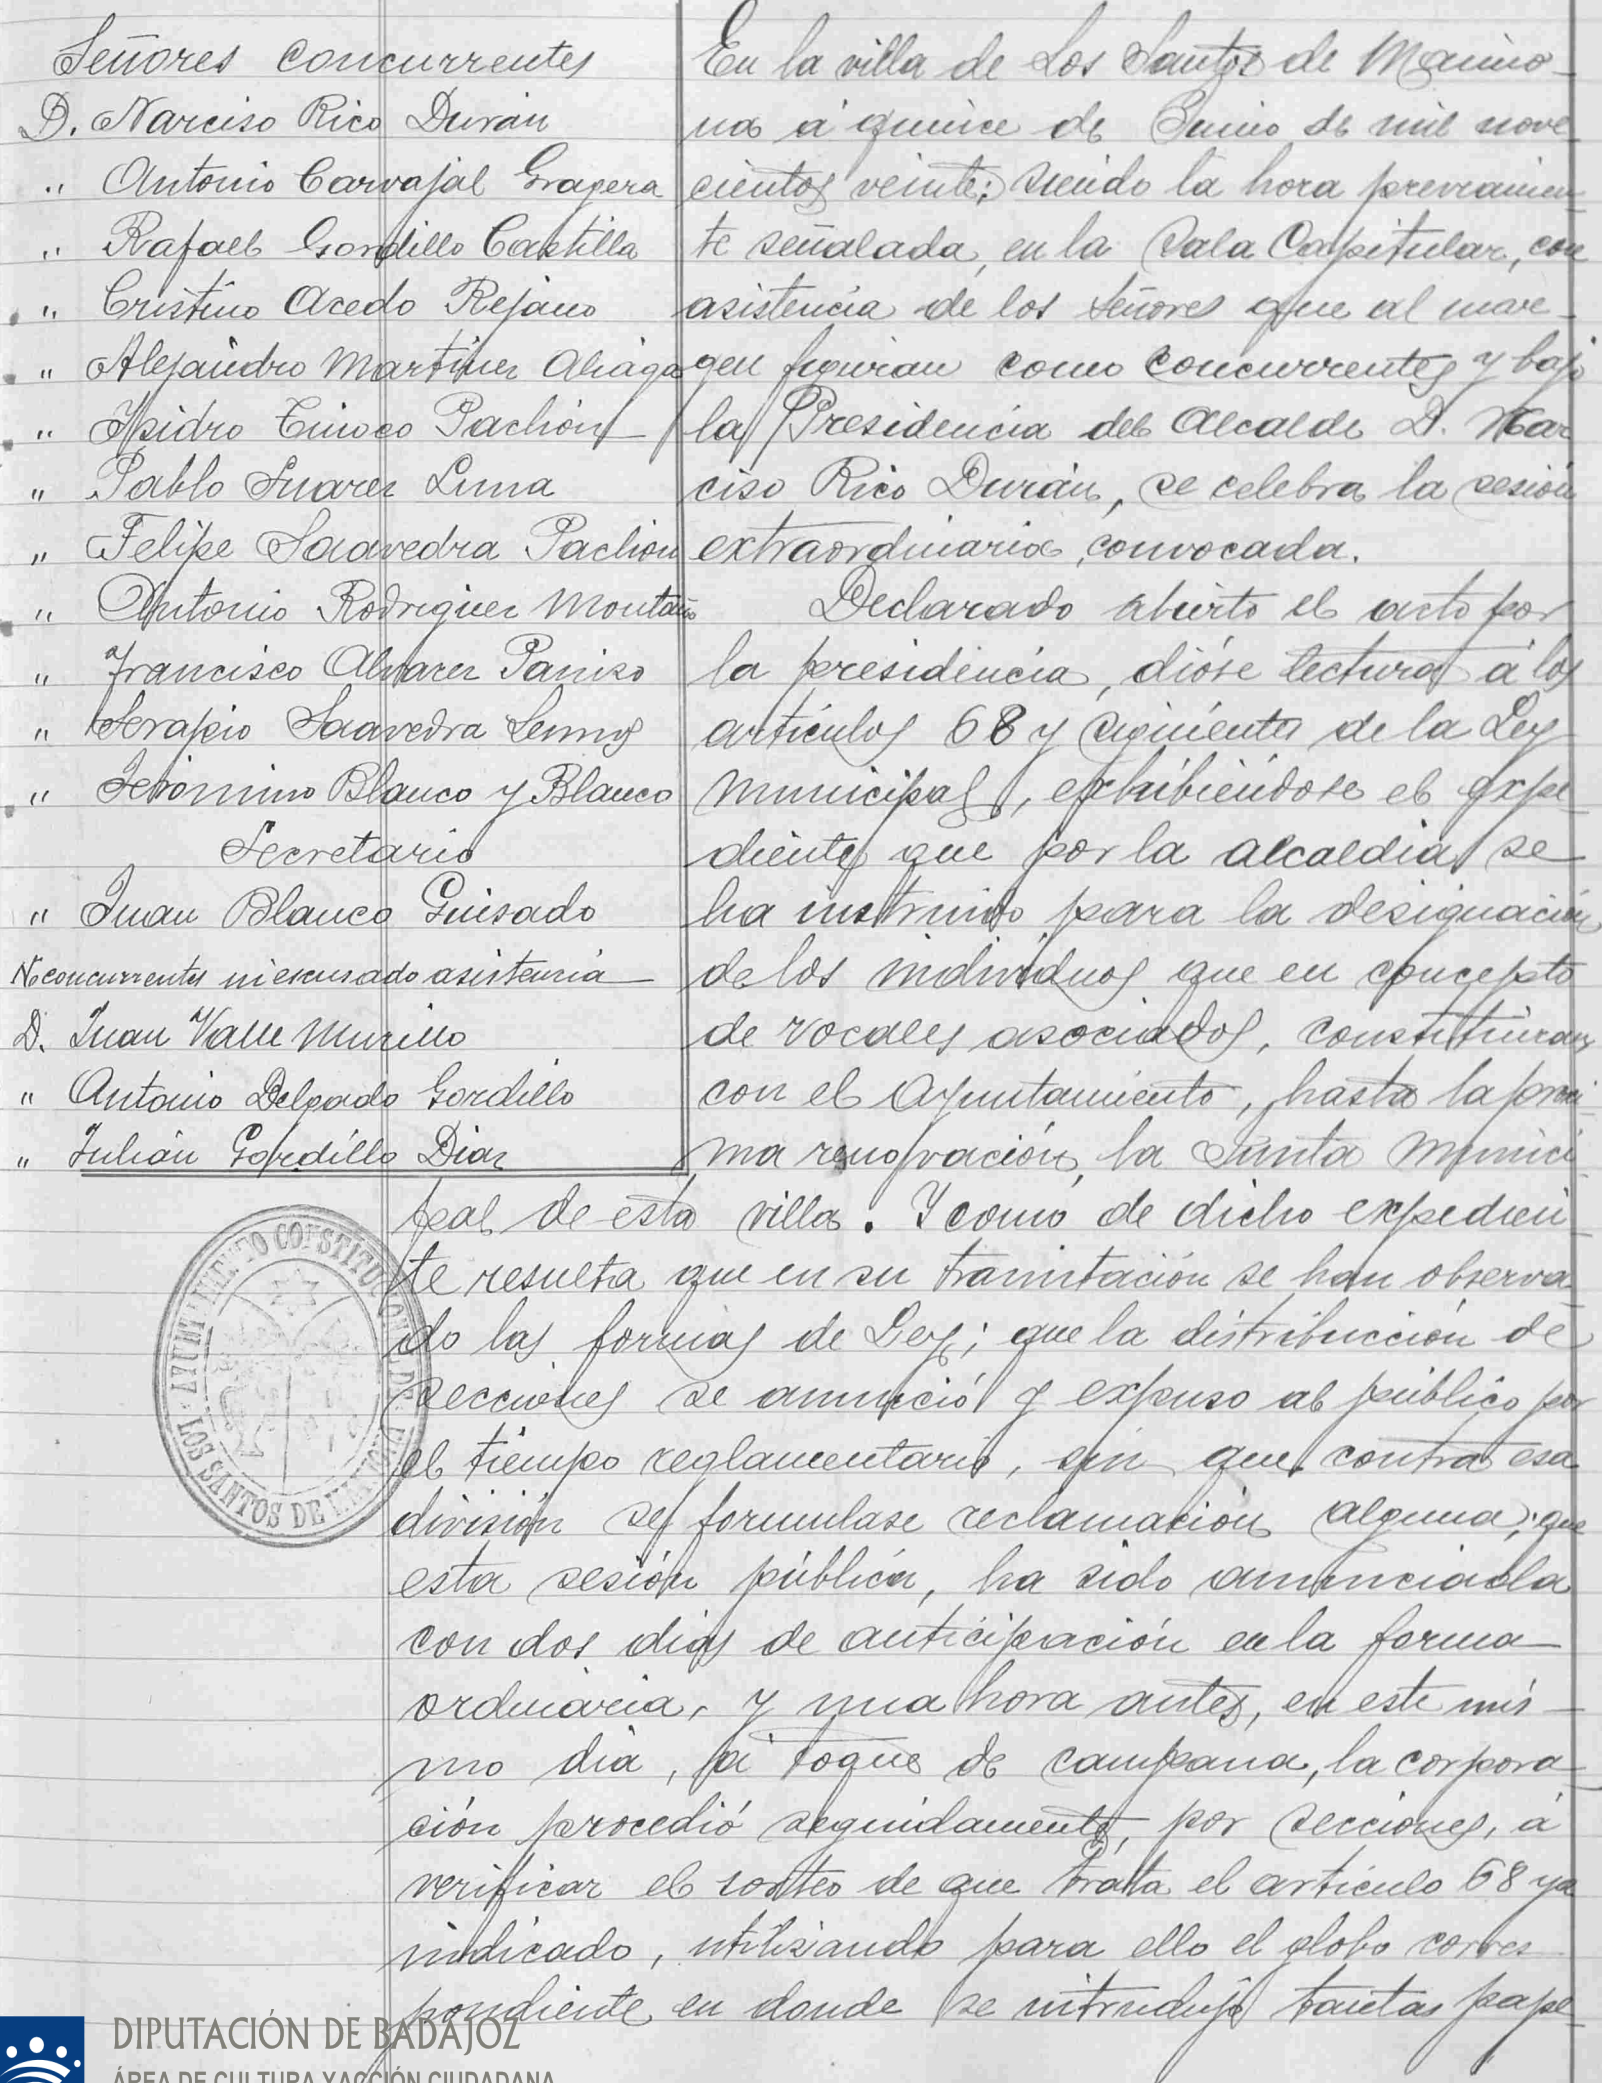 Señores concurrentes
D. Narciso Rico Durán
" Antonio Carvajal Gragera
" Rafael Gordillo Castilla
" Cristino Acedo Rejano
" Alejandro Martinez Aliaga
" Ysidro Tinoco Pachón
" Pablo Suarez Luna
" Felipe Saavedra Pachon
" Antonio Rodriguez Montaño
" Francisco Alvarez Panizo
" Serapio Saavedra Lemus
" Jerónimo Blanco y Blanco
Secretario
" Juan Blanco Guisado
No concurrentes ni escusado asistencia
D. Juan Valle Murillo
" Antonio Delgado Gordillo
" Julián Gordillo Diaz
En la villa de Los Santos de Maimo-
na á quince de Junio de mil nove
cientos veinte; siendo la hora previamen-
te señalada, en la Sala Capitular, con
asistencia de los señores que al mar-
gen figuran como concurrentes y bajo
la Presidencia del Alcalde D. Nar
ciso Rico Durán, se celebra la sesión
extraordinaria convocada.
Declarado abierto el acto por
la presidencia, dióse lectura á los
artículos 68 y siguientes de la Ley
municipal, exhibiéndose el expe
diente que por la alcaldia se
ha instruido para la designación
de los individuos que en concepto
de vocales asociados, constituiran
con el Ayuntamiento, hasta la próxi-
ma renovación, la Junta Munici
pal de esta villa. Y como de dicho expedien
te resulta que en su tramitación se han observa
do las formas de Ley; que la distribucción de
secciones se anunció y expuso al público por
el tiempo reglamentario, sin que contra esa
división se formulase reclamación alguna; que
esta sesión pública, ha sido anunciada
con dos dias de anticipación en la forma
ordinaria, y una hora antes, en este mis-
mo dia, á toque de campana, la corpora-
ción procedió seguidamente, por secciones, á
verificar el sorteo de que trata el artículo 68 ya
indicado, utilizando para ello el globo corres
pondiente en donde se introdujo tantas pape-
AYUNTAMIENTO CONSTITUCIONAL DE
LOS SANTOS DE MAIMONA
DIPUTACIÓN DE BADAJOZ
ÁREA DE CULTURA Y ACCIÓN CIUDADANA